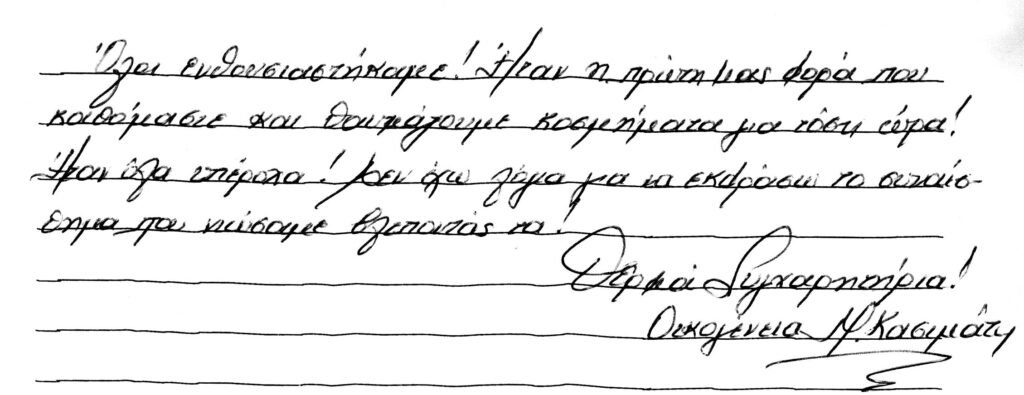 Όλοι ενθουσιαστήκαμε! Ήταν η πρώτη μας φορά που
καθόμαστε και θαυμάζουμε κοσμήματα για τόση ώρα!
Ήταν όλα υπέροχα! Δεν έχω λόγια για να εκφράσω το συναίσ-
θημα που νιώσαμε βλέποντάς τα!
Θερμά Συγχαρητήρια!
Οικογένεια Μ. Κασιμάτη